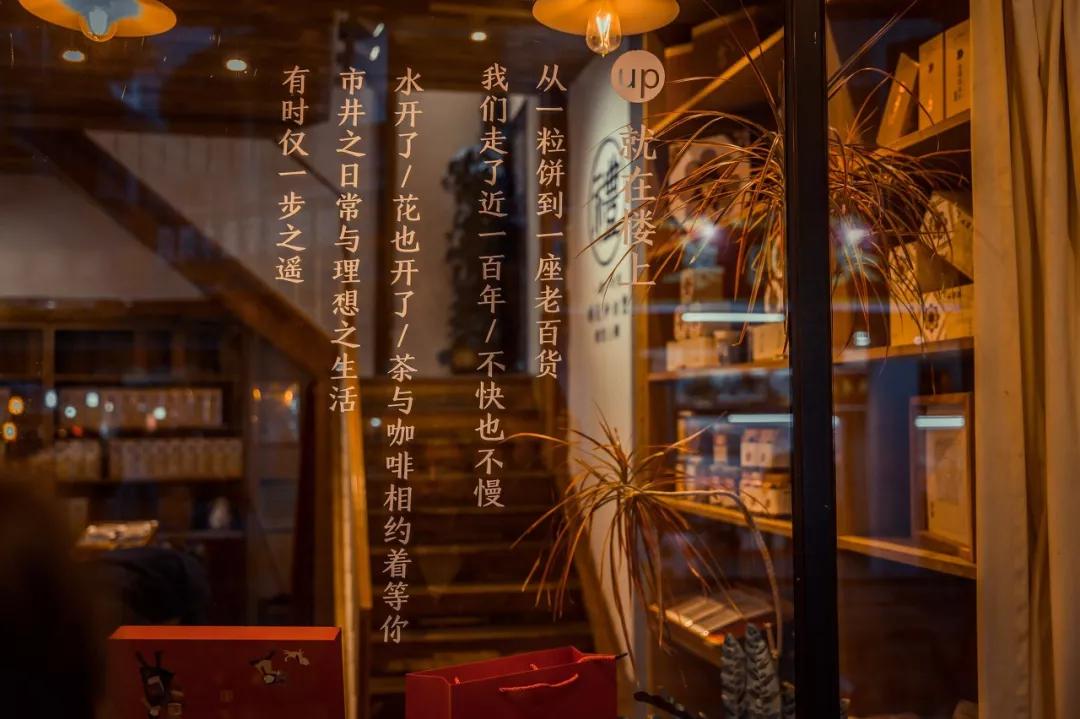 up
就在楼上
从一粒饼到一座老百货
我们走了近一百年/不快也不慢
水开了/花也开了/茶与咖啡相约着等你
市井之日常与理想之生活
有时仅一步之遥
禮